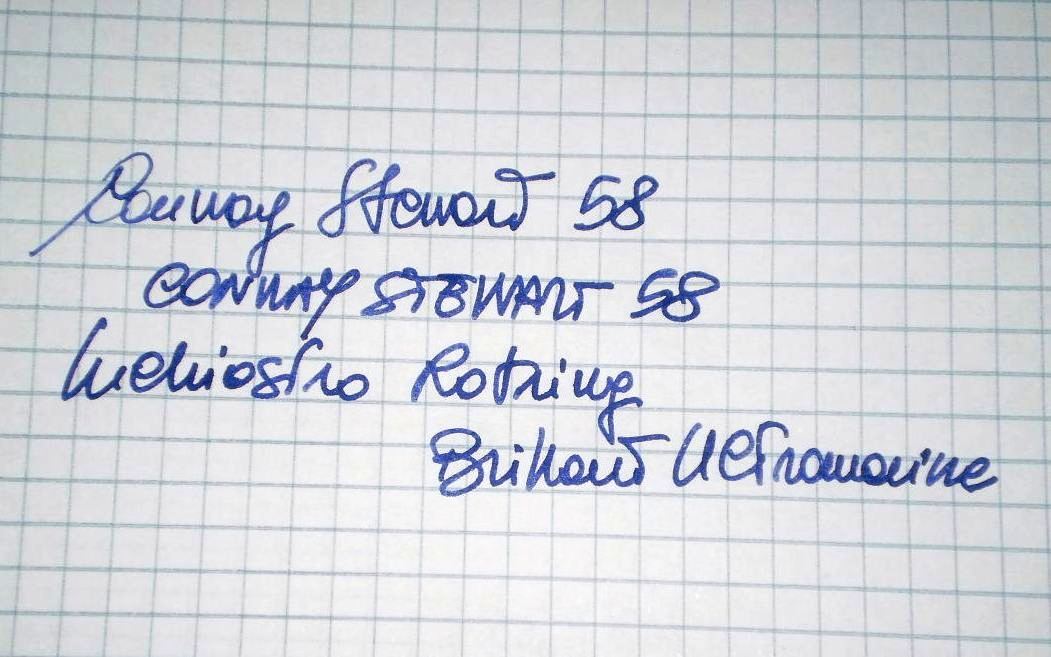 Conway Stewart 58
CONWAY STEWART 58
Inchiostro Rotring
Brillant Ultramarine